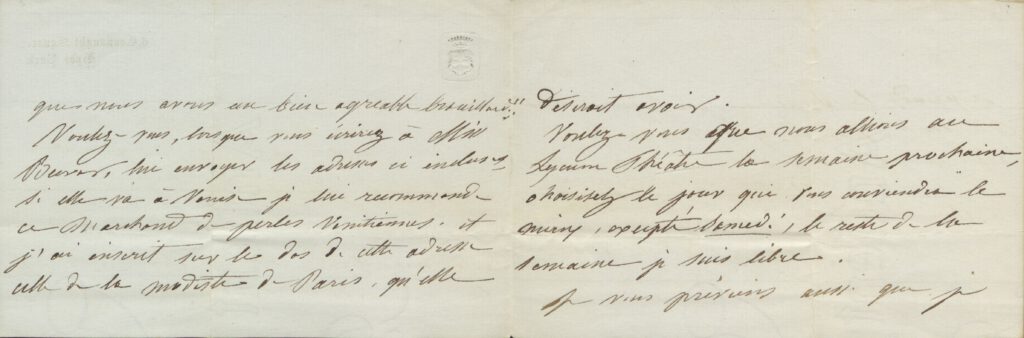 que nous avons un bien agréable brouillard!!
Voulez vous, lorsque vous écrirez à Miss
lui envoyer les adresses ci incluses
si elle va à Venise je lui recommande
ce Marchand de perles Vénitiennes. et
j'ai inscrit sur le dos de cette adresse
celle de la modiste de Paris, qu'elle
désirait avoir.
Voulez vous que nous allions au
Lyceum Théâtre la semaine prochaine,
choisissez le jour que vous conviendra le
mieux, excepté Samedi, le reste de la
semaine je suis libre.
Je vous préviens aussi que je